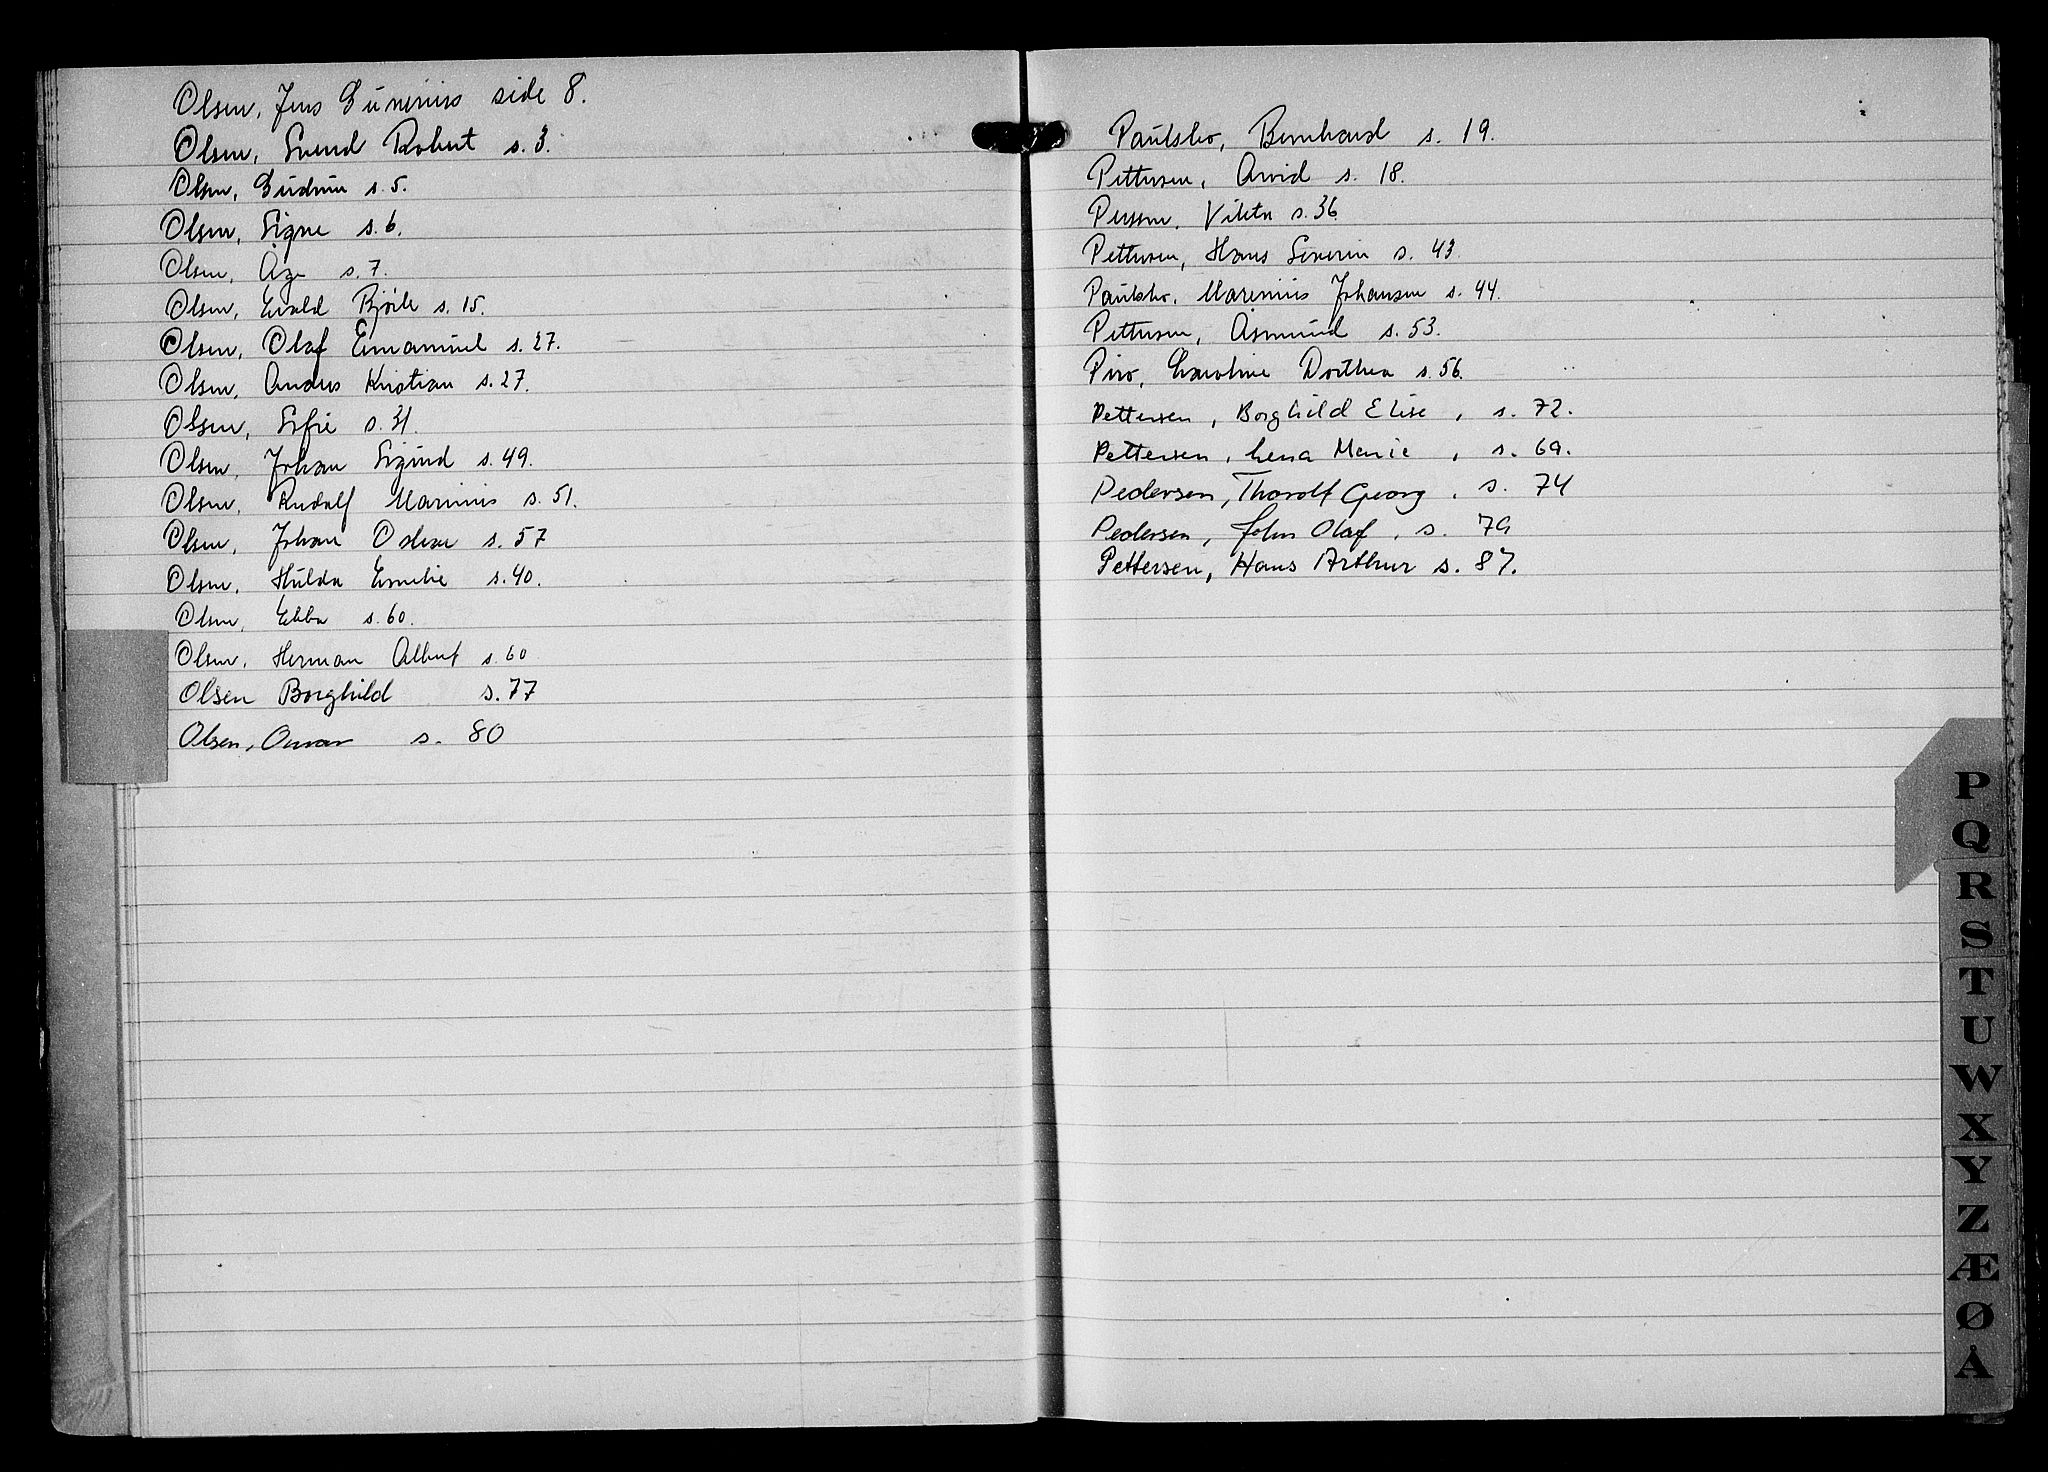 Olsen, Jens Gunerius side 8.
Olsen, Svend Robert s. 3.
Olsen, Gudrun s. 5.
Olsen, Signe s. 6.
Olsen, Åge s. 7.
Olsen, Evald s. 15.
Olsen, Olaf Emanuel s. 27.
Olsen, Anders Kristian s. 27.
Olsen, Sofie s. 31.
Olsen, Johan Sigurd s. 49.
Olsen, Rudolf Marinius s. 51.
Olsen, Johan Oskar s. 57
Olsen, Hulda Emilie s. 40.
Olsen, Ebba s. 60.
Olsen, Herman Albert s. 60
Olsen Borghild s. 77
Olsen, s. 80
Paulsbo, Bernhard s. 19.
Pettersen, Arvid s. 18.
Persson, Viktor s. 36.
Pettersen, Hans Severin s. 43.
Paulsbo, Marenius Johansen s. 44.
Pettersen, Åsmund s. 53.
Piro, Karoline Dorthea s. 56.
Pettersen, Borghild Elise, s. 72.
Pettersen, Lena Marie, s. 69.
Pedersen, Thorolf Georg, s. 74
Pedersen, John Olaf, s. 79
Pettersen, Hans Arthur s. 87.
P
Q
R
S
T
U
W
X
Y
Z
Æ
Ø
Å